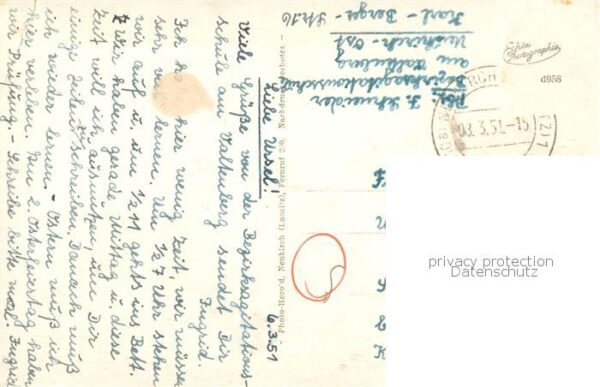 6.3.51
Liebe Ursel!
Viele Grüße von der Bezirksagitations-
schule am Valtenberg sendet Dir
Ingrid.
Ich habe hier wenig Zeit, wir müssen
sehr viel lernen. Um 1/2 7 Uhr stehen
wir auf u. um 1/2 11 gehts ins Bett.
Wir haben gerade Mittag u. diese
Zeit will ich ausnutzen, um Dir
einige Zeilen zu schreiben. Danach muß
ich wieder lernen. Ostern muß ich
hier verleben. Am 2. Osterfeiertag haben
wir Prüfung. - Schreibe bitte mal. Ingrid
Abs. I. Schneider
Bezirksagitationsschule
am Valtenberg
Neukirch - Ost
Karl - Berger - Str. 16
- Photo-Herold, Neukirch (Lausitz), Fernruf 210. Nachdruck verboten -
Echte
Photographie
d958
08.3.51.-15
privacy protection
Datenschutz